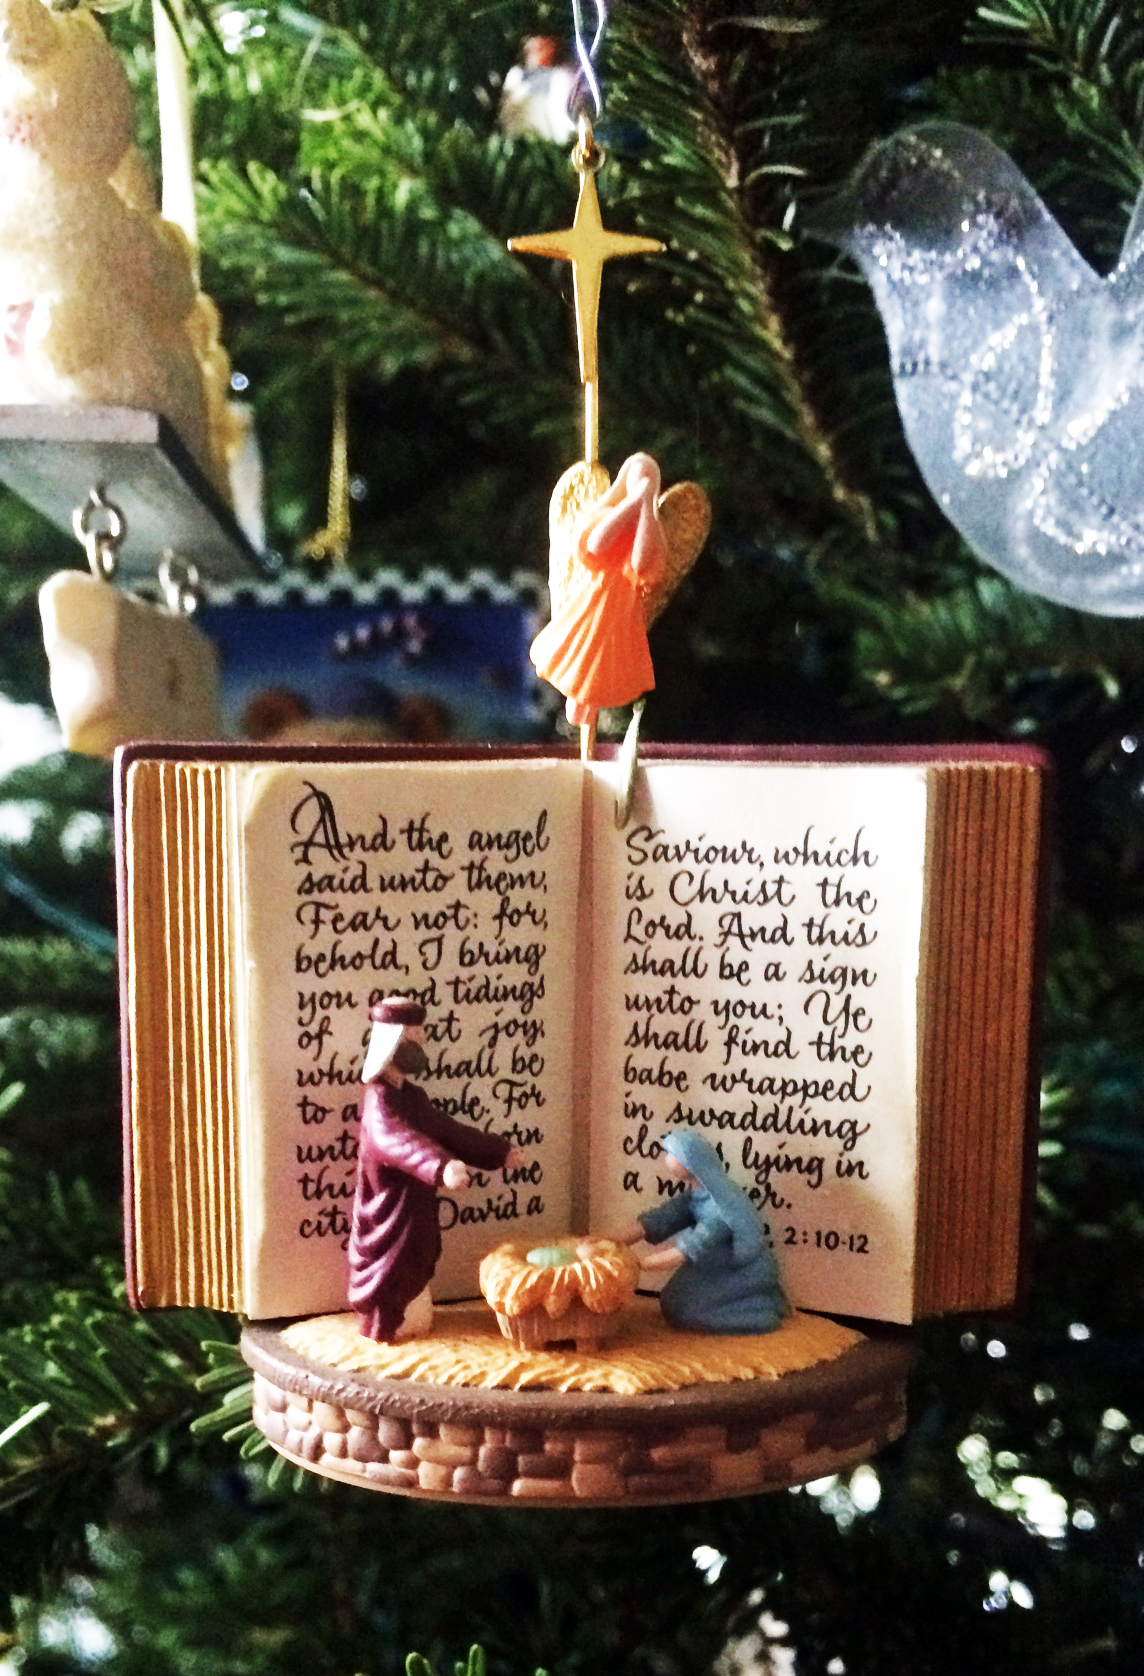 And the angel
said unto them,
Fear not: for,
behold, I bring
you good tidings
of joy,
which shall be
to For
unto
the
city David a
Saviour, which
is Christ the
Lord. And this
shall be a sign
unto you; Ye
shall find the
babe wrapped
in swaddling
lying in
a
2:10-12